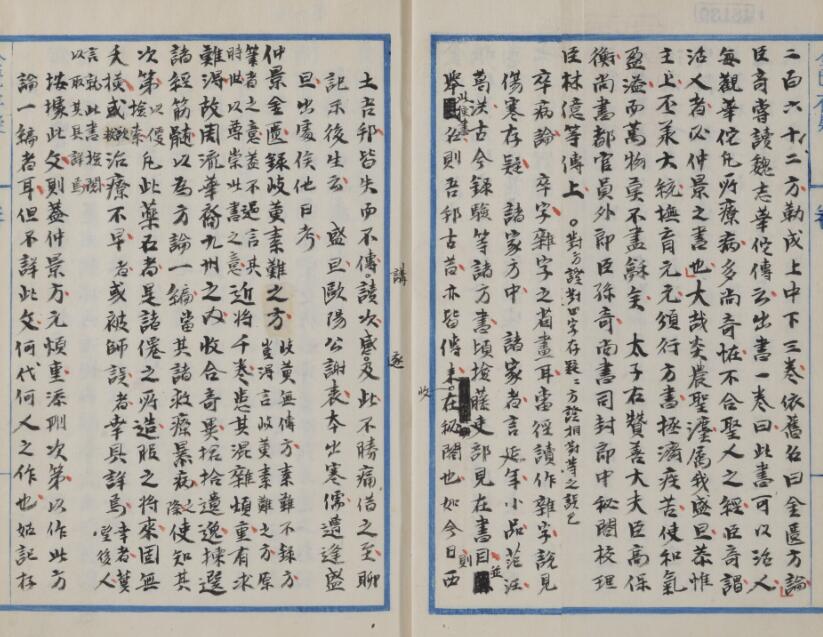 二百六十二方勒成上中下三卷依舊名曰金匱方論
臣奇嘗讀魏志華佗傳云出書一卷曰此書可以活人
每觀華佗凡所療病多尚奇怪不合聖人之經臣奇謂
活人者必仲景之書也大哉炎農聖灋属我盛旦恭惟
主上丕承大統撫育元元頒行方書拯濟疾苦使和氣
盈溢而萬物莫不盡龢矣 太子右贊善大夫臣高保
衡尚書都官員外郎臣孫奇尚書司封郎中秘閣校理
臣林億等傳上
對方證對四字存疑
方證相對等之誤已
卒病論 卒字雜字之省畫耳當從讀作雜字說見
傷寒存疑 諸家方中 諸家者言延年小品范汪
葛洪古今録驗等諸方書頃檢藤吏部見在書目並
此數書
名則吾邦古昔亦皆傳來在秘閣也如今日則西
收
土吾邦皆失而不傳讀次感及此不勝痛借之至聊
記示後生云 盛旦歐陽公謝表本出寒儒遭逢盛
旦出處俟他日考
講
逐
仲景金匱録岐黄素難之方
此黄無傳方素難不録方
豈得言岐黄素難之方原
筆者之意蓋不過言其
時此以尊崇此書之意
近將千卷患其混雜煩重有求
難得故周流華裔九州之内收合奇異捃拾遺逸揀選
諸經筋髓以為方論一編當其諸救療暴病
之際
使知其
次第
以便
檢索
凡此藥石者是諸僊之所造服之將來固無
夭横或
治療不早者或被師誤者幸具詳焉
幸者莫
望後人
言就此書檢閲
以取其具詳焉
按據此文則蓋仲景方元煩重添刪次第以作此方
論一編者耳但不詳此文何代何人之作也姑記存